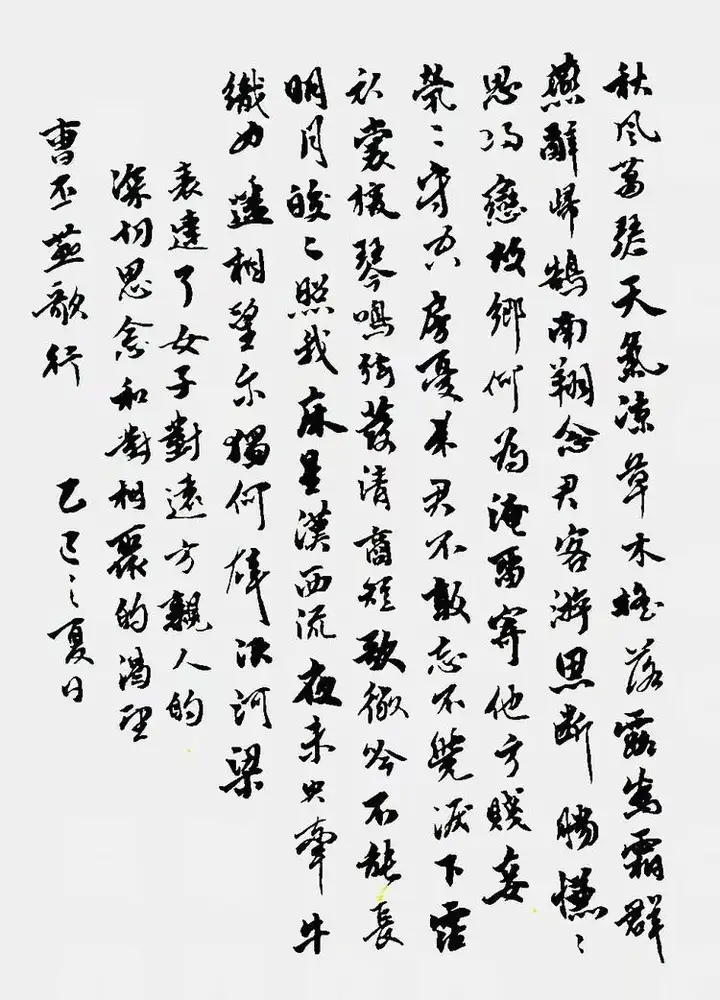 秋风蕭瑟天氣凉草木摇落露為霜群
燕辭歸鵠南翔念君客遊思断腸慊々
思归戀故鄉何為淹留寄他方賤妾
煢々守空房憂来君不敢忘不覺淚下霑
衣裳援琴鳴弦發清商短歌微吟不能長
明月皎々照我床星漢西流夜未央牽牛
織女遥相望尔獨何辜限河梁
表達了女子對遠方親人的
深切思念和對相聚的渴望
曹丕燕歌行 乙巳之夏日